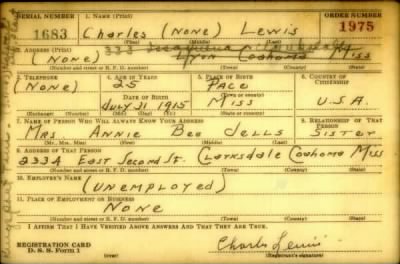 SERIAL NUMBER 1. NAME (Print) ORDER NUMBER
1683 Charles (None) Lewis 1975
(First) (Middle) (Last)
2. ADDRESS (Print) 333 Issaquena
(None) Lyon Coahoma Miss
(Number and street or R. F. D. number) (Town) (County) (State)
3. TELEPHONE 4. AGE IN YEARS 5. PLACE OF BIRTH 6. COUNTRY OF CITIZENSHIP
(None) 25 Pace
DATE OF BIRTH (Town or county)
July 31 1915 Miss U.S.A.
(Exchange) (Number) (Mo.) (Day) (Yr.) (State or country)
7. NAME OF PERSON WHO WILL ALWAYS KNOW YOUR ADDRESS 8. RELATIONSHIP OF THAT PERSON
Mrs Annie Bee Jells Sister
(Mr., Mrs., Miss) (First) (Middle) (Last)
9. ADDRESS OF THAT PERSON
2334 East Second St. Clarksdale Coahoma Miss
(Number and street or R. F. D. number) (Town) (County) (State)
10. EMPLOYER'S NAME
(Unemployed)
11. PLACE OF EMPLOYMENT OR BUSINESS
None
(Number and street or R. F. D. number) (Town) (County) (State)
I AFFIRM THAT I HAVE VERIFIED ABOVE ANSWERS AND THAT THEY ARE TRUE.
REGISTRATION CARD
D. S. S. Form 1 Charles Lewis
(Registrant's signature)